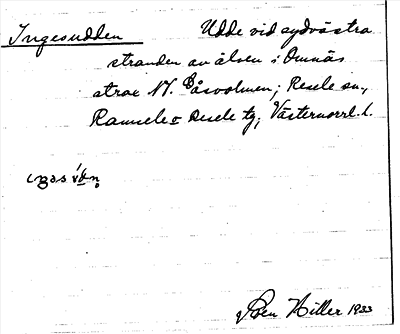 Ingesudden Udde vid sydvästra
stranden av älven i Omnäs
strax N. Gåsholmen; Resele sn.,
Ramsele o Resele tg; Västernorrl. l.
Sven Hiller 1933